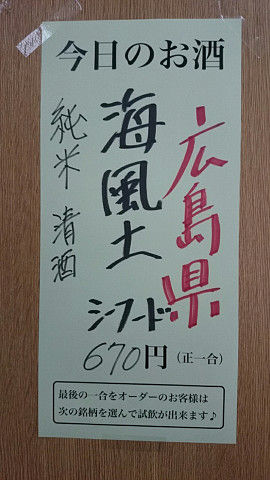 今日のお酒
広島県
海風土
シーフード
純米 清酒
670円(正一合)
最後の一合をオーダーのお客様は
次の銘柄を選んで試飲が出来ます♪